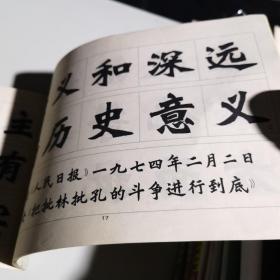 义和深远
历史意义
人民日报》一九七四年二月二日
把批林批孔的斗争进行到底》
17
主
有